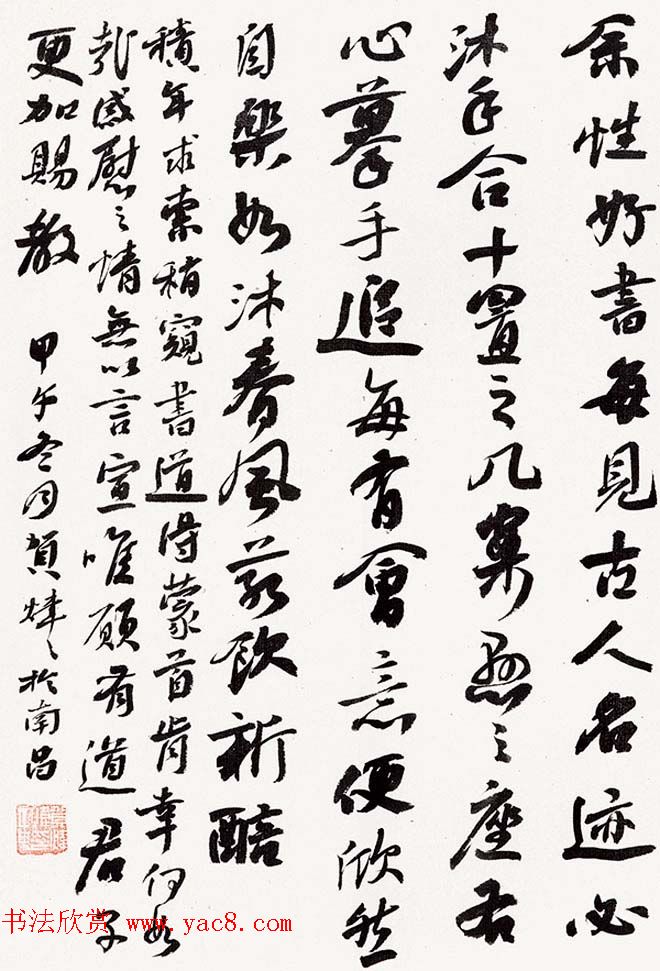 余性好書每見古人名迹必
沐手合十置之几案懸之座右
心摹手追每有會意便欣然
自樂如沐春風若飲新醅
積年求索稍窺書道得蒙首肯幸何如
哉感慰之情無以言宣唯願有道君子
更加賜教 甲午冬月賀煒煒於南昌
书法欣赏 www.yac8.com